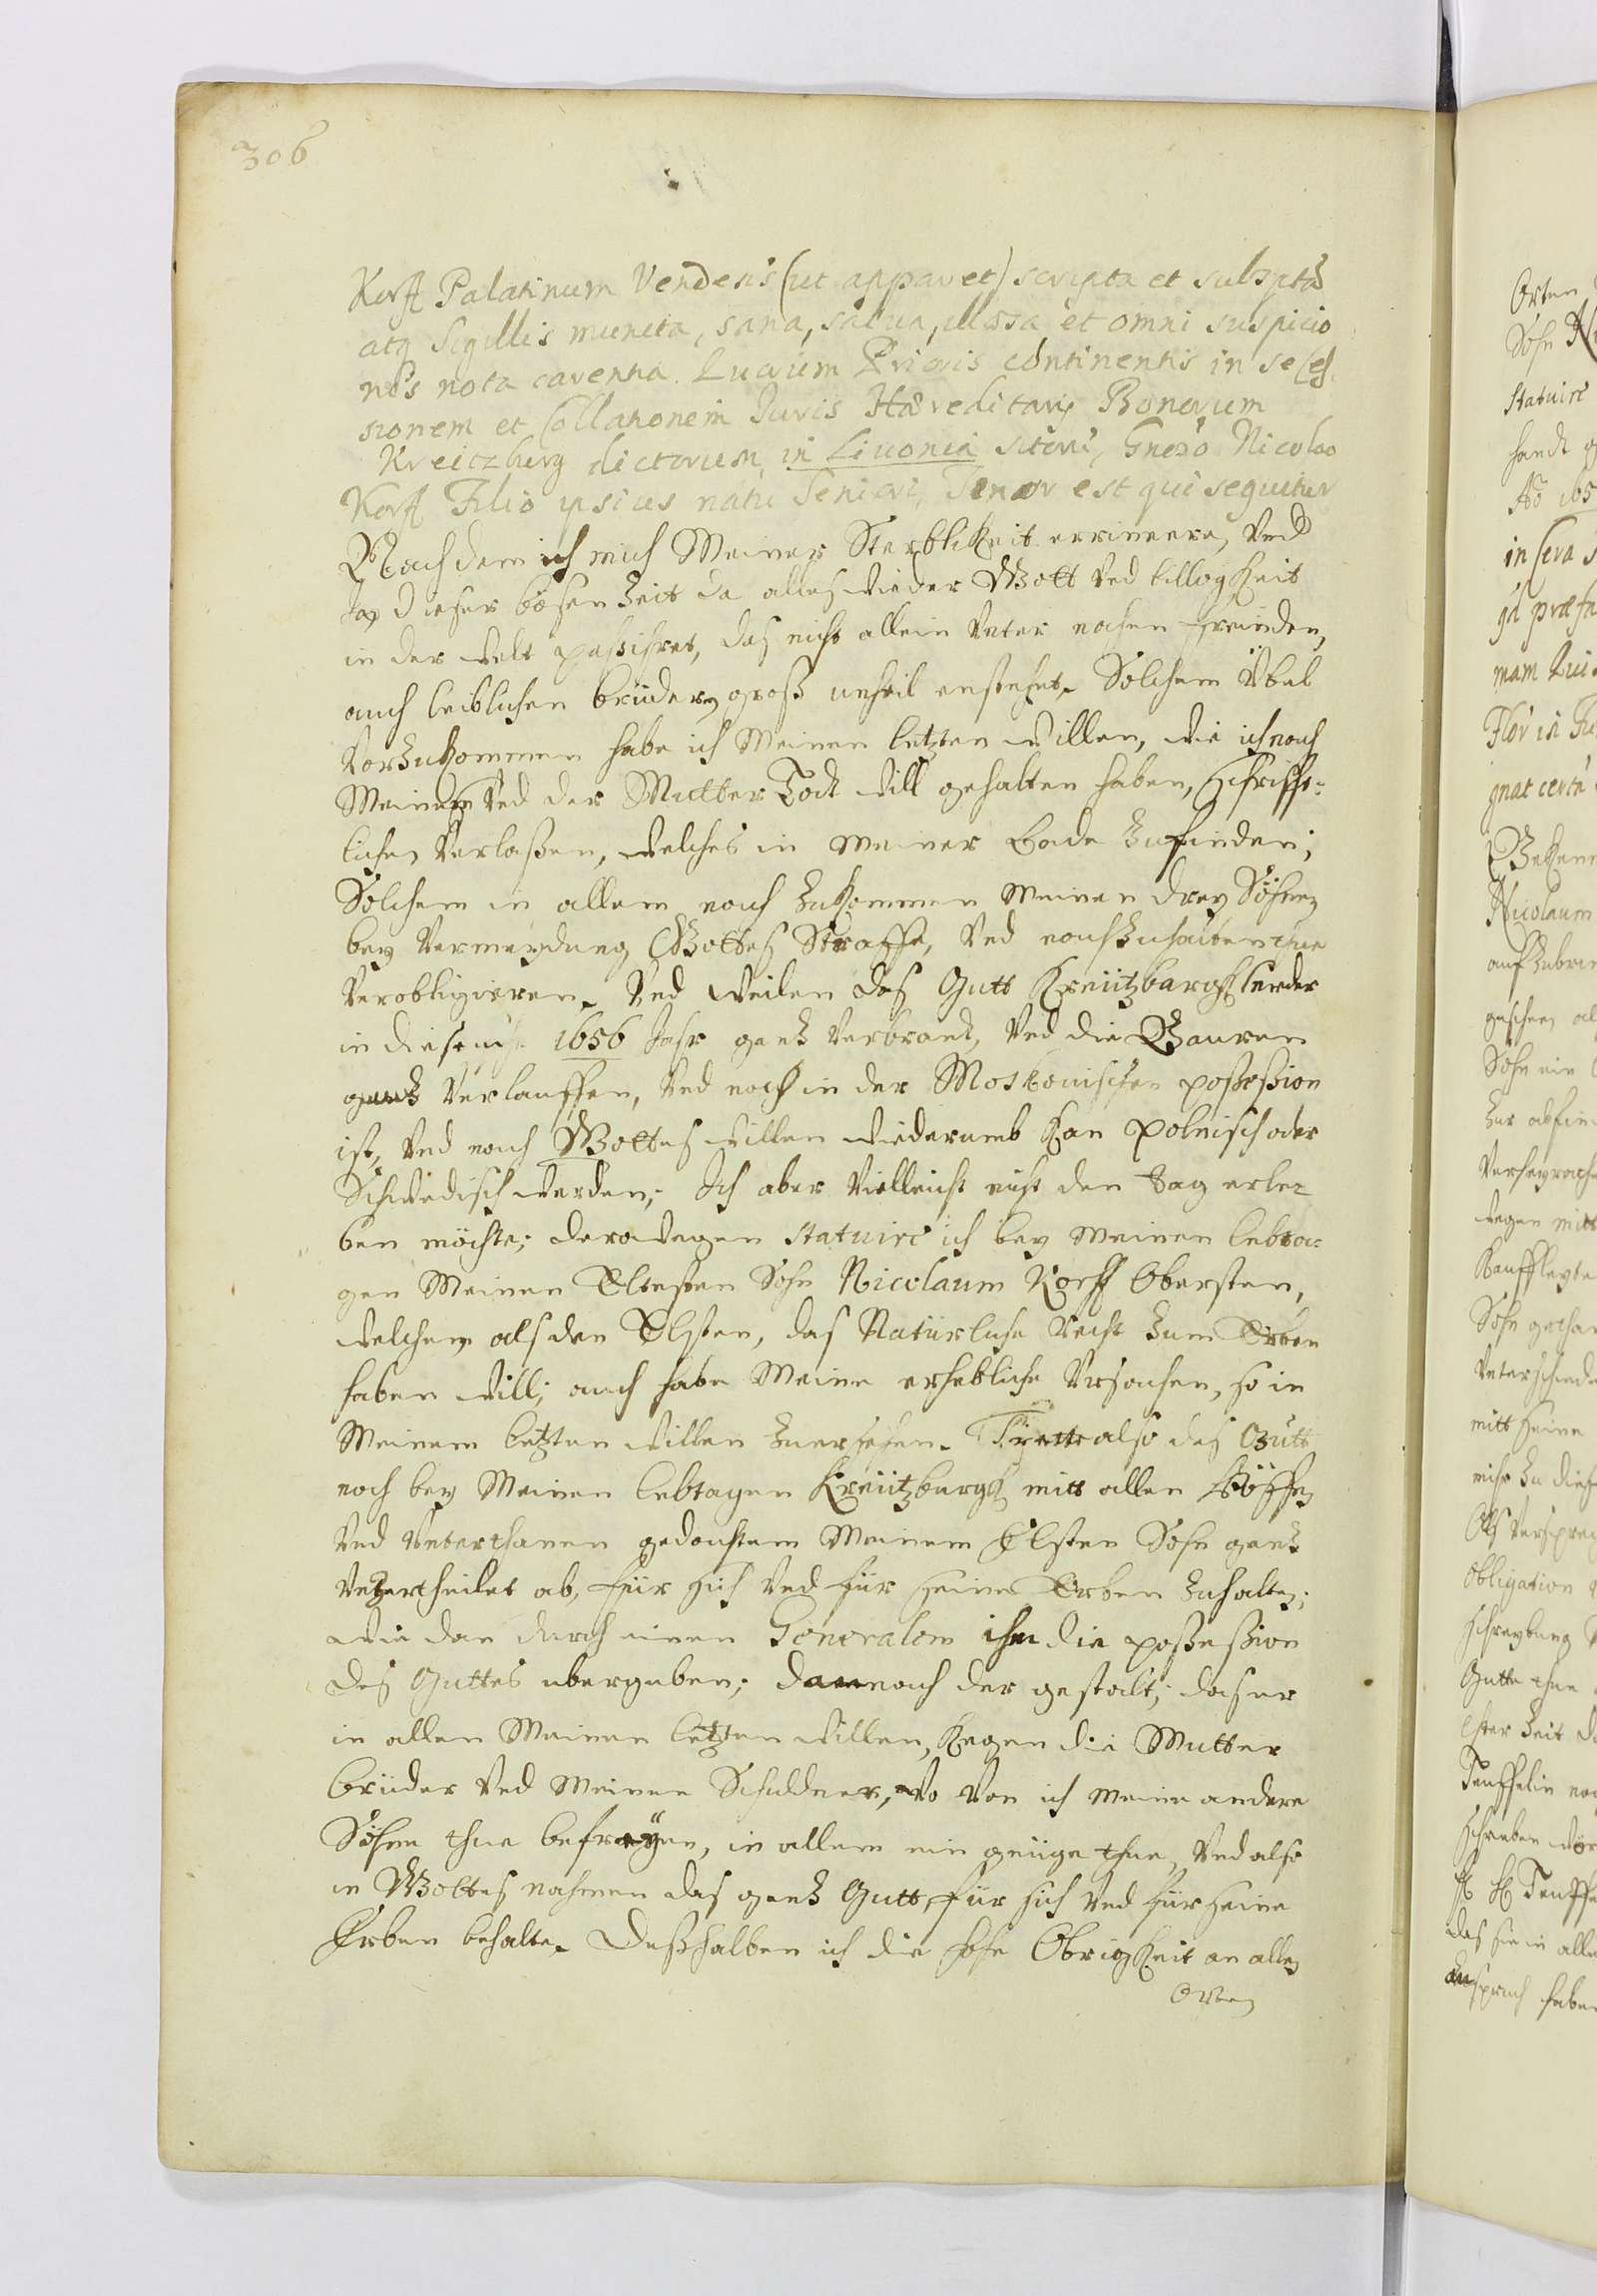 306
Korff Palatinum Vendensis (ut apparet) scripta et subscpta
atq Sigillis munita, sana, salva, illæsa et omni suspicio
nis nota carentia. Quarum Prioris continentis in se Ces
sionem et Collationem Juris Hæreditarij Bonorum
Kreiczberg dictorum, in Livonia sitorũ, Gneso Nicolao
Korff Filio ipsius natu Seniori, Tenor est qui sequitur
Nach dem ich mich Meiner Sterblikeit errinnere, Vnd
dieser bösen Zeit da alles wieder Gott Vnd billogkeit
in der welt passihret, das nicht allein Vnter nahen freunden,
auch leiblichen brüdern groß unheil enstehet. Solchem Übel
Vorzukommen habe ich Meinen letzten willen, wie ich nach
Meinem Vnd der Mutter Todt will gehalten haben, schrifft-
lichen Verlaßen, welches in meiner Lade zufinden;
Solchem in allem nach zukommen meinen drey Söhnen
bey Vermeydung Gottes Straffe, Vnd nachzuhalten thue
Verobligieren. Vnd weilen das Gutt Kreützburgk leyder
in diesem 1656 Jahr gantz Verbrant, Vnd die Bauren
gantz Verlauffen, Vnd noch in der Moskouischen possession
ist, Vnd nach Gottes willen wiederumb kan polnisch oder
Schwedisch werden; Ich aber Villeicht nicht den tag erle-
ben möchte; derowegen statuire ich bey meinen lebta-
gen Meinen Eltesten Sohn Nicolaum Korff Obersten,
welchem als den Elsten, das Natürliche Recht zum Erben
haben will; auch habe Meine erhebliche Vrsachen, so in
Meinem letzten willen zuersehen. Trette also das Gutt
noch bey Meinen lebtagen Kreützburgk mitt allen Höffen
Vnd Vnterthanen gedachtem Meinem Elsten Sohn gantz
Vnzertheilet ab, für sich Vnd für seine Erben zuhalten;
wie dan durch einen Generalem ihm die possession
des Guttes ubergeben; dannoch der gestalt, das er
in allen Meinen letzten willen, kegen die Mutter
brüder Vnd Meinen Schuldner, wo Von ich meine andere
Söhne thue befreyen, in allem ein genüge thue, Vnd also
in Gottes nahmen das gantz Gutt, für sich Vnd für seine
Erben behalte. Deßhalben ich die hohe Obrigkeit an allen
Orten
Orten
Sohn
statuire
handt
Aõ 165
in sera
mam
gnat certe
Nicolaum
auf zubrin
Sohn ein
wegen mitt
Kauffleyte
Sohn gethan
mitt seine
Obligation
Gutte thue
Teuffelin
das sie in alle
anspruch habe